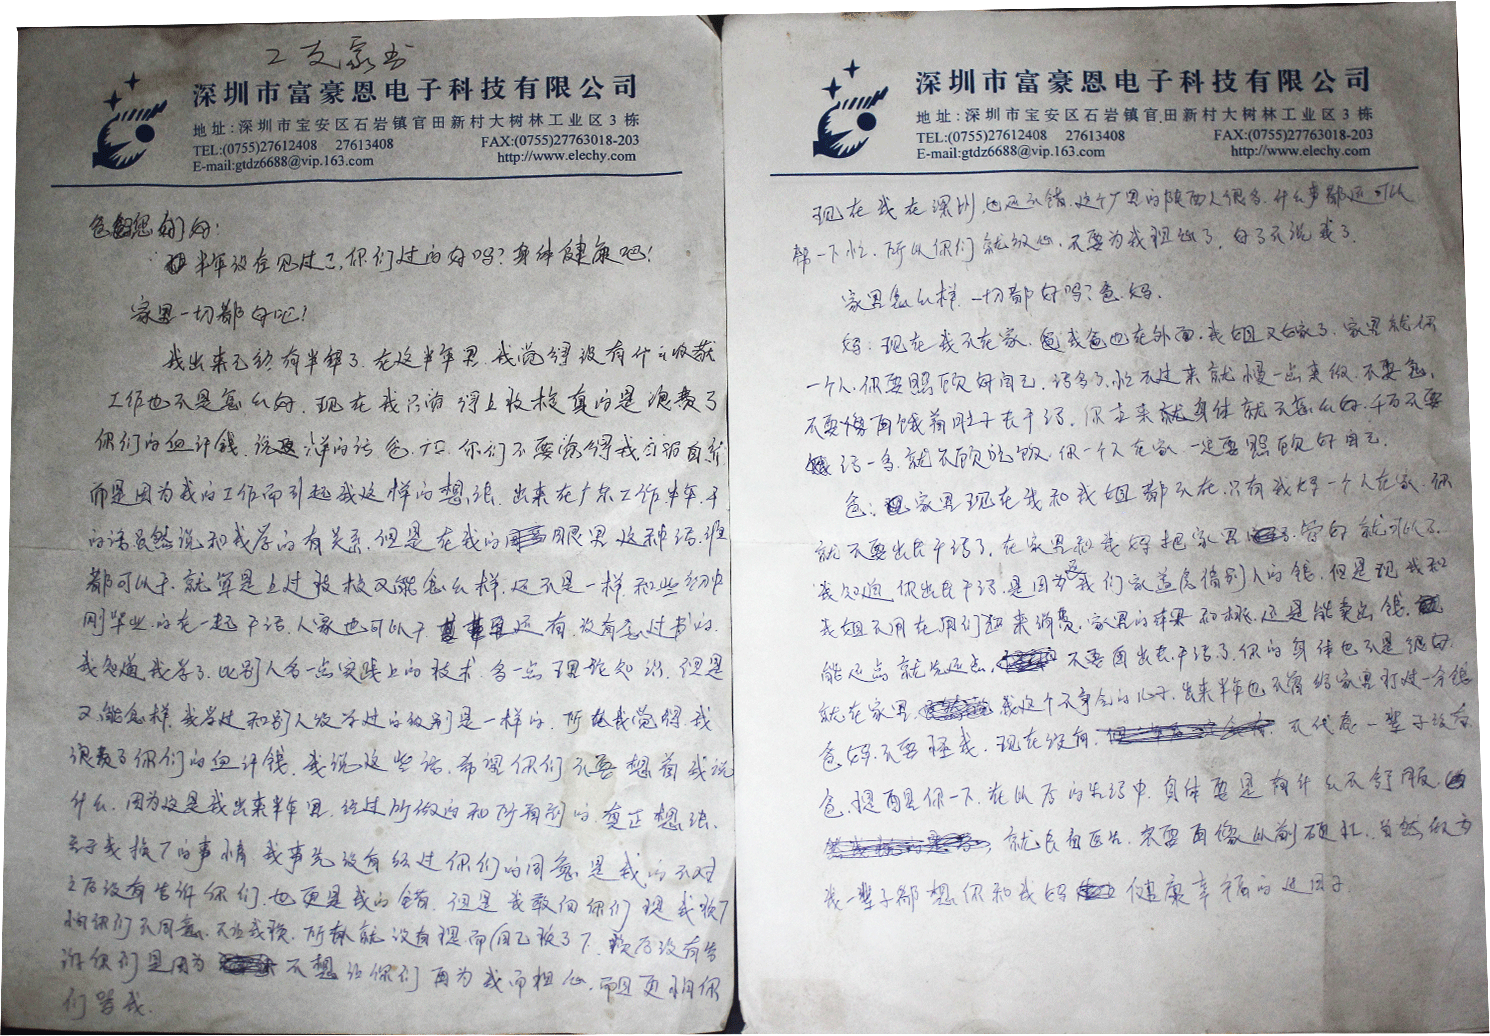 家书
深圳市富豪恩电子科技有限公司
地址:深圳市宝安区石岩镇官田新村大树林工业区3栋
TEL:(0755)27612408 27613408 FAX:(0755)27763018-203
E-mail:gtdz6688@vip.163.com http://www.elechy.com
爸妈您们好:
半年没在见过了,你们过的好吗?身体健康吧!
家里一切都好吧!
我出来已经有半年了.在这半年里.我觉得没有什么收获
工作也不是怎么好.现在我只觉得上技校真的是浪费了
你们的血汗钱.说这样的话爸.妈.你们不要觉得我
而是因为我的工作而引起我这样的想法.出来在广东工作半年.干
的活虽然说和我学的有关系.但是在我的眼里这种活.谁
都可以干.就算是上过技校又能怎么样.还不是一样和些初中
刚毕业的在一起干活.人家也可以干还有没有念过书的.
我知道我学了.比别人多一点实践上的技术.多一点理论知识.但是
又能怎样.我学过和别人没学过的级别是一样的.所以我觉得我
浪费了你们的血汗钱.我说这些话.希望你们不要想着我说
什么.因为这是我出来半年里.经过所做的和所看到的.真正想法.
关于我换厂的事情.我事先没有经过你们的同意.是我的不对
之后没有告诉你们.也更是我的错.但是我敢向你们提我换厂
怕你们不同意.不让我换.所以就没有提.而自己换了厂.换后没有告
诉你们是因为不想让你们再为我而担心.而且更怕你
们骂我.
现在我在深圳也还不错.这个厂里的陕西人很多.什么事都还可以
帮一下忙.所以你们就放心.不要为我担心了.好了不说我了.
家里怎么样.一切都好吗?爸.妈.
妈:现在我不在家.我爸也在外面.我姐又嫁了.家里就你
一个人.你要照顾好自己.活多了.忙不过来就慢一点来做.不要急.
不要像再饿着肚子去干活.你本来就身体就不怎么好.千万不要
活一多.就不顾吃饭.你一个人在家.一定要照顾好自己.
爸:家里现在我和我姐都不在.只有我妈一个人在家.你
就不要出去干活了.在家里和我妈把家里管好就可以了.
我知道你出去干活.是因为我们家盖房借别人的钱.但是现我和
我姐不用在用你们的来消费.家里的苹果和桃.还是能卖些钱.
能还点就先还点.不要再出去干活了.你的身体也不是很好.
就在家里.我这个不争气的儿子.出来半年也不曾给家里打过一分钱
爸妈.不要怪我.现在没有.不代表一辈子没有
爸.提醒你一下.在以后的生活中.身体要是有什么不舒服.
就去看医生.不要再像以前硬扛.虽然做为
我一辈子都想你和我妈健康幸福的过日子.